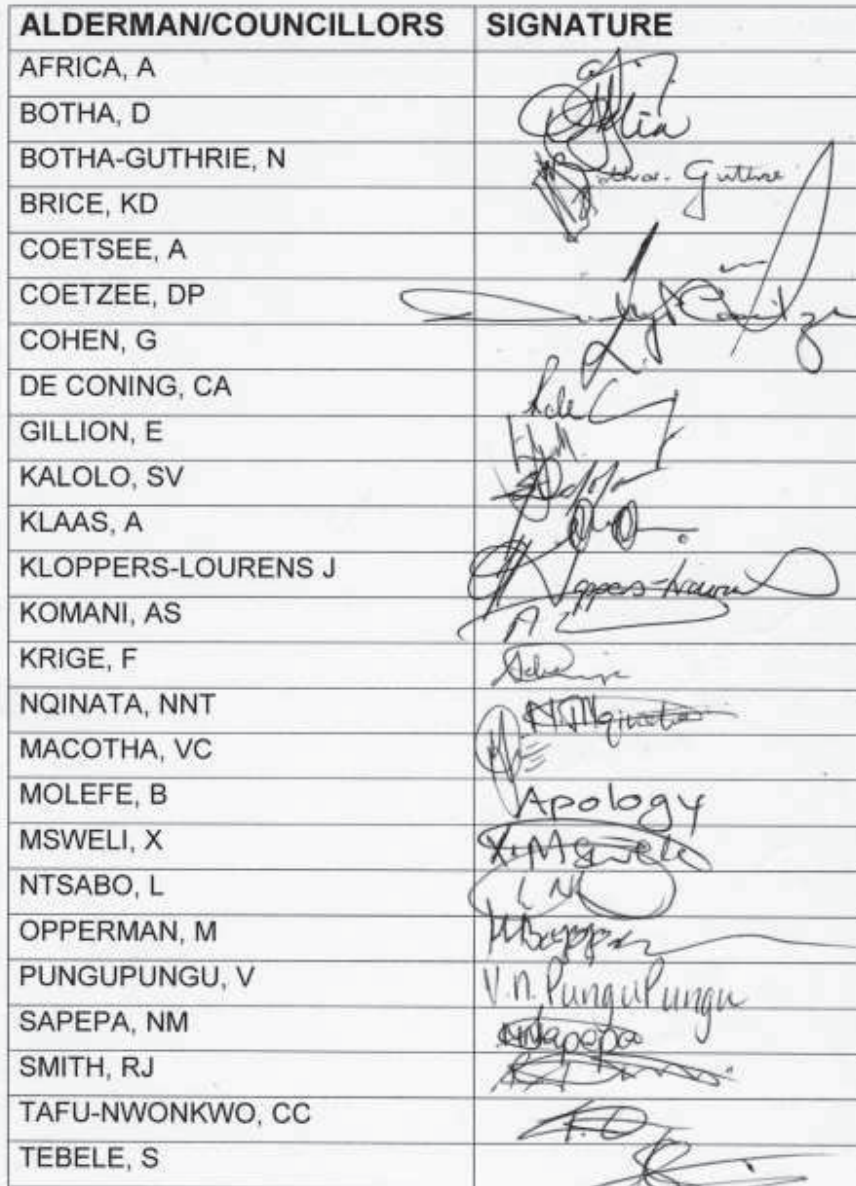 ALDERMAN/COUNCILLORS SIGNATURE
AFRICA, A
BOTHA, D
BOTHA-GUTHRIE, N Guthrie
BRICE, KD
COETSEE, A
COETZEE, DP
COHEN, G
DE CONING, CA
GILLION, E
KALOLO, SV
KLAAS, A
KLOPPERS-LOURENS J
KOMANI, AS
KRIGE, F
NQINATA, NNT
MACOTHA, VC
MOLEFE, B Apology
MSWELI, X X. Msweli
NTSABO, L LN
OPPERMAN, M
PUNGUPUNGU, V V.n. PunguPungu
SAPEPA, NM NMsapepa
SMITH, RJ
TAFU-NWONKWO, CC
TEBELE, S